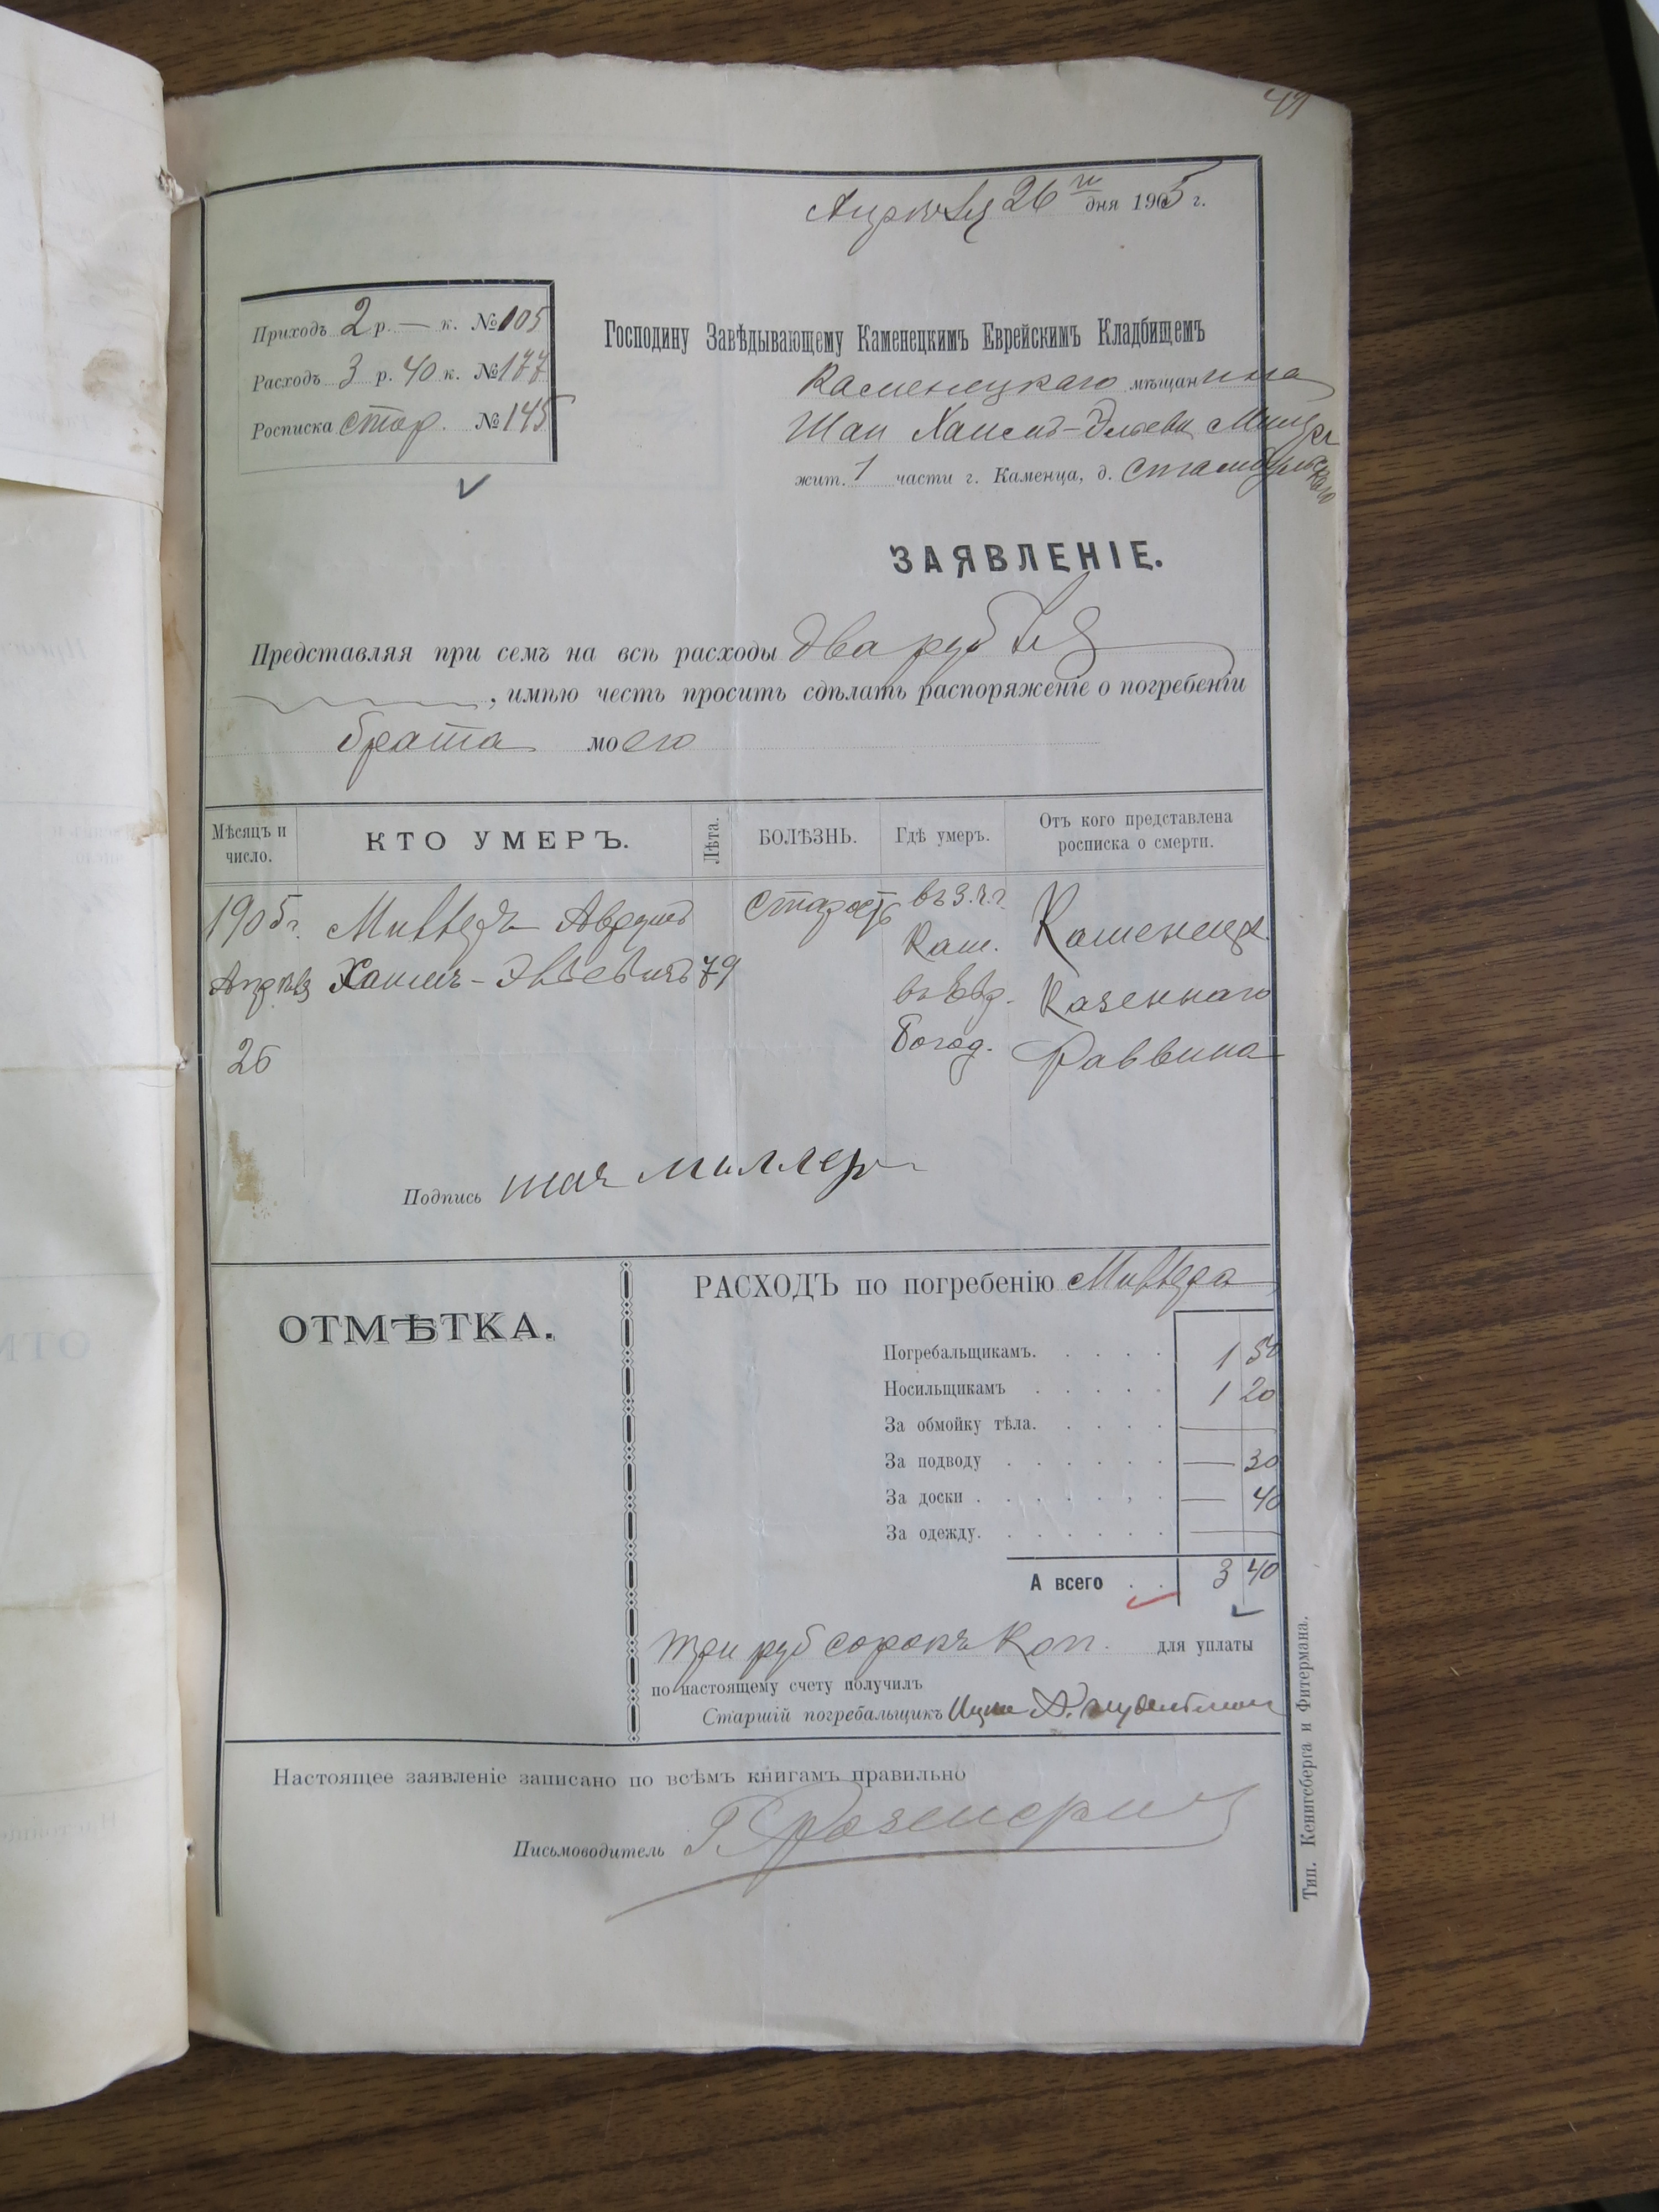 49
Апрѣля 26 го дня 1905 г.
Приходъ 2 р. — к. № 105
Расходъ 3 р. 40 к. № 177
Росписка стор. № 145
Господину Завѣдывающему Каменецкимъ Еврейскимъ Кладбищемъ
Каменецкаго мѣщанина
Шаи Хаимъ-Эльевич Миллер
жит. 1 части г. Каменца, д. Стамбульскаго
ЗАЯВЛЕНІЕ.
Представляя при семъ на всѣ расходы два рубля
, имѣю честь просить сдѣлать распоряженіе о погребеніи
брата моего
Мѣсяцъ и число.
КТО УМЕРЪ.
Лѣта.
БОЛѢЗНЬ.
Гдѣ умеръ.
Отъ кого представлена росписка о смерти.
1905 г. Миллеръ Аврумъ старость въ 3. ч. г. Каменецк.
Апрѣля Хаимъ-Эльевичъ 79 Кам. Казеннаго
26 въ Евр. Богад. Раввина
Подпись шая миллеръ
ОТМѢТКА.
РАСХОДЪ по погребенію Миллера
Погребальщикамъ. 1 50
Носильщикамъ 1 20
За обмойку тѣла. —
За подводу — 30
За доски — 40
За одежду. —
А всего 3 40
три руб сорокъ коп. для уплаты
по настоящему счету получилъ
Старшій погребальщикъ Ицик
Настоящее заявленіе записано по всѣмъ книгамъ правильно
Письмоводитель
Тип. Кенигсберга и Фитермана.